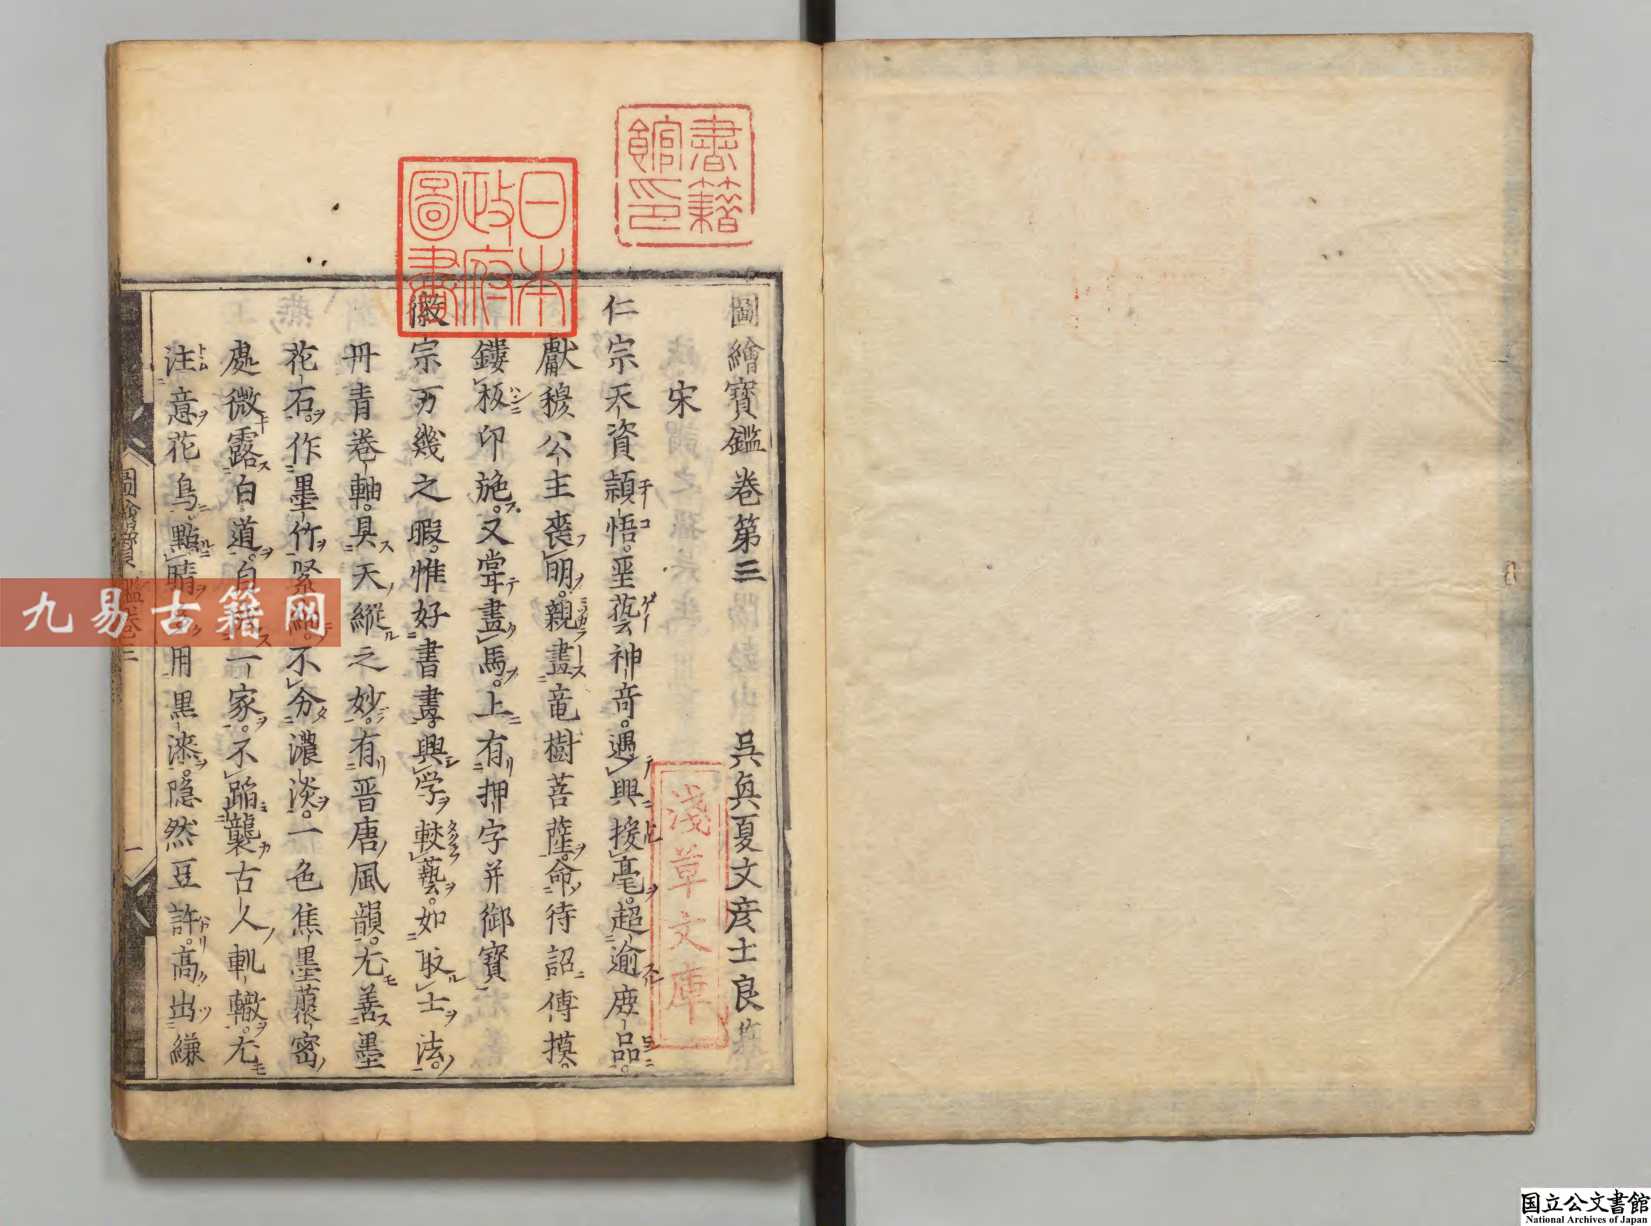 書籍館印
日本政府圖書
圖繪寶鑑卷第三 吳興夏文彦士良
宋
仁宗天資頴悟。聖藝神奇。遇興援毫。超逾庻品。
獻穆公主喪明。親畫竜樹菩薩。命待詔傳摸。
鏤板印施。又甞畫馬。上有押字并御寳
徽宗万幾之暇。惟好書畫。興学較藝。如取士法。
丹青卷軸。具天縱之妙。有晋唐風韻。尤善墨
花石。作墨竹緊細。不分濃淡。一色焦墨藂密
處微露白道。自成一家。不蹈襲古人軌轍。尤
注意花鳥。點睛多用黒漆。隠然豆許。髙出縑
圖繪寶鑑卷三
一
淺草文庫
九易古籍网
国立公文書館
National Archives of Japan